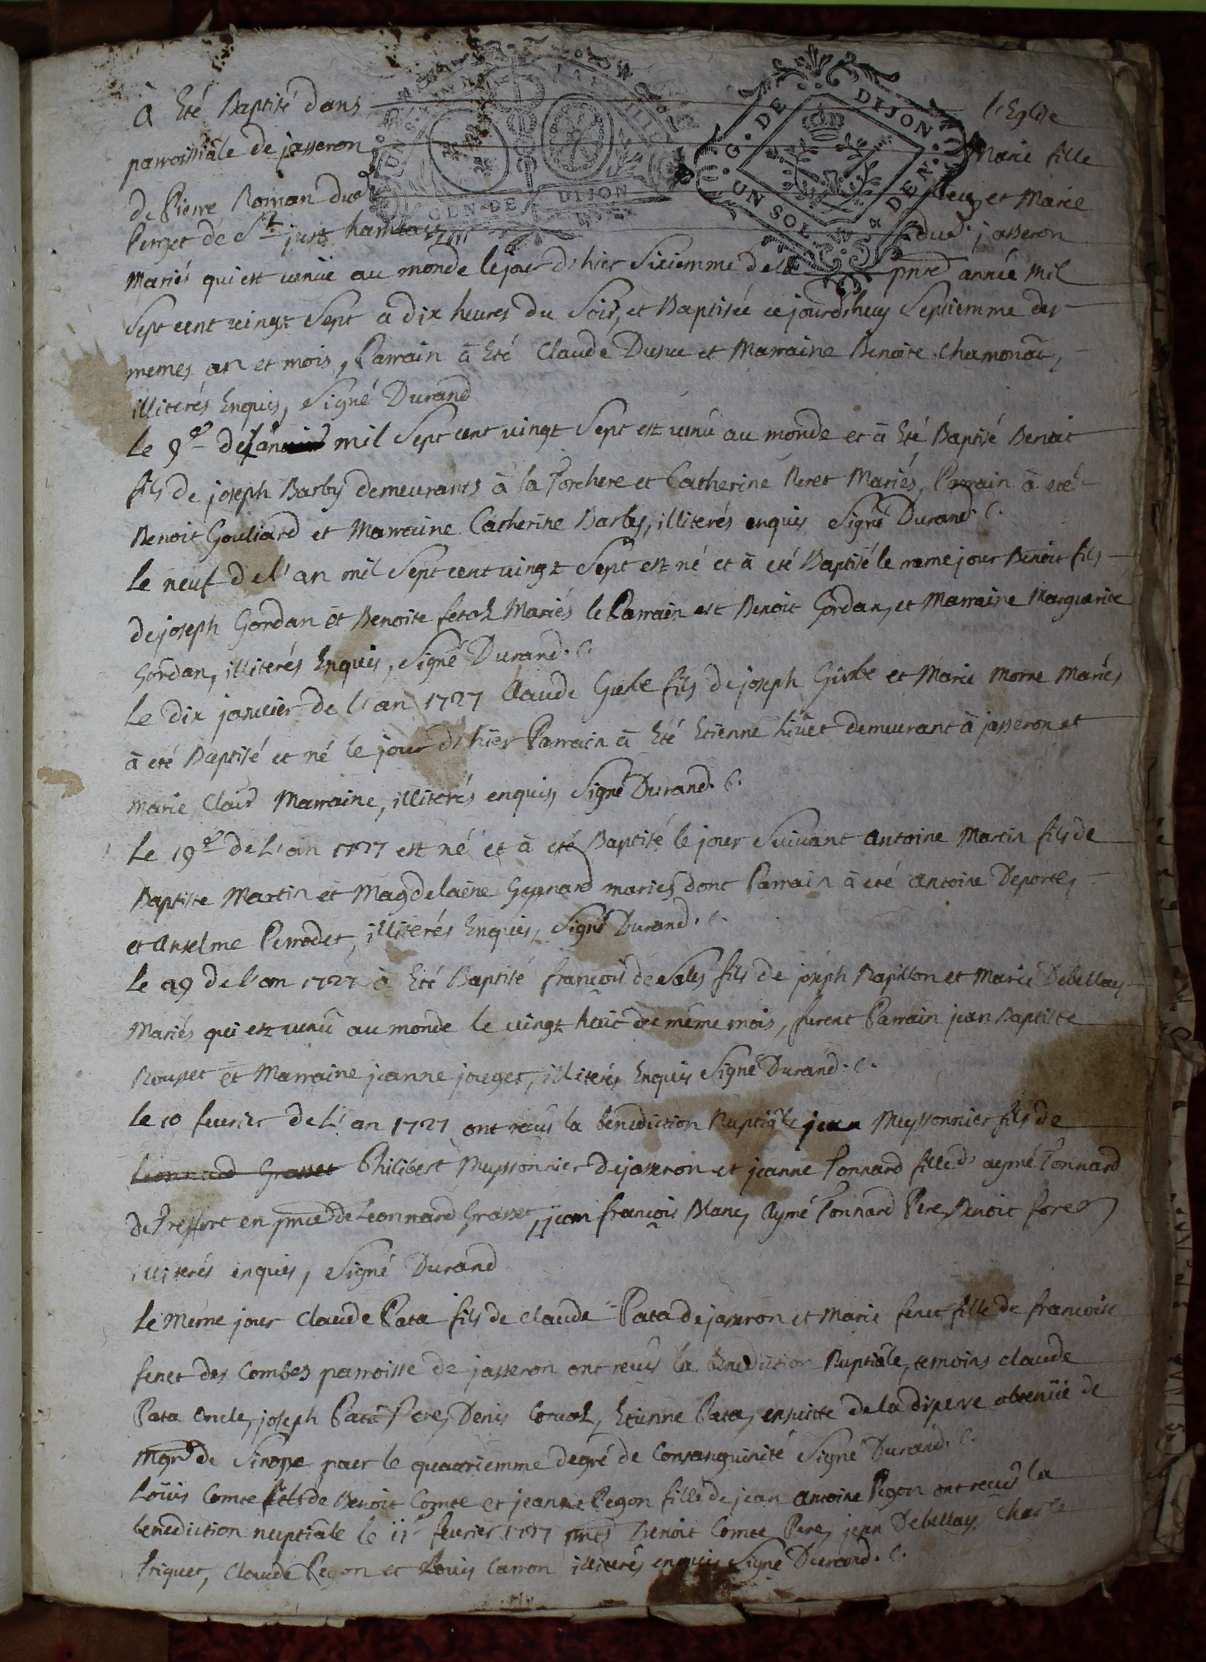 à Eté Baptisé dans l'Eglise
parroissiale de jasseron Marie fille
de Pierre Roman dud lieu, et Marie
Perret de St just dud jasseron
Mariés qui est venüe au monde le jour d'hier Sixiemme de pnte année Mil
Sept cent vingt Sept a dix heures du Soir, et Baptisée ce jourdhuy Septiemme des
memes an et mois, Parrain à Eté Claude et Marraine Benoite Chamonat,
illiterés Enquis, Signé Durand
Le 9e de mil Sept cent vingt Sept est venu au monde et à Eté Baptisé Benoit
fils de joseph Barby demeurants à la Torchere et Catherine Peret Mariés, Parrain à eté
Benoit Gouliard et Marraine Catherine Barby, illiterés enquis Signé Durand. C.
Le neuf de l'an mil Sept cent vingt Sept est né et à eté Baptisé le meme jour Benoit fils
de joseph Gordan et Benoite Mariés le Parrain est Benoit Gordan, et Marraine Marguerite
Gordan, illiterés Enquis, Signé Durand. C.
Le dix janvier de l'an 1727 Claude fils de joseph et Marie Morne Mariés
à eté Baptisé et né le jour d'hier Parrain à Eté Etienne demeurant à jasseron et
marie Clair Marraine, illiterés enquis, Signé Durand. C.
Le 19e de L'an 1727 est né et à eté Baptisé le jour Suivant antoine Martin fils de
Baptiste Martin et Magdelaine mariés dont Parrain à eté antoine Deporte,
et Anselme Perrodet, illiterés Enquis, Signé Durand. C.
Le 29 de l'an 1727 à Eté Baptisé françois de Sales fils de joseph Papillon et Marie Debellay
Mariés qui est venu au monde le vingt huit de même mois, furent Parrain jean Baptiste
Rousset et Marraine jeanne joüget, illiterés Enquis Signé Durand. C.
Le 10 fevrier de L'an 1727 ont reçus la benediction Nuptiale jean Meyssonnier fils de
Leonnard Grasset Philibert Meyssonnier de jasseron et jeanne Tonnard fille d'aymé Tonnard
de Treffort en pnce de Leonnard Grasset, jean françois Blanc, Aymé Tonnard Pere, Benoit
illiterés enquis, Signé Durand
Le Même jour Claude Pata fils de Claude Pata de jasseron et Marie fenet fille de francoise
fenet des Combes parroisse de jasseron ont reçus la Benediction Nuptiale, temoins Claude
Pata Oncle, joseph Pata frere, Denis Etienne Pata, ensuitte de la dispense obtenüe de
Mgr de Sinope pour le quatriemme degré de Consanguinité Signé Durand. C.
Loüis Comte fils de Benoit Comte et jeanne Pegon fille de jean antoine Pegon ont reçus la
benediction nuptiale le 11e fevrier 1727 pnts Benoit Comte Pere, jean Debellay Charle
Triquet, Claude Pegon et Louis Carron illiterés enquis Signé Durand. C.
GEN. DE DIJON
G. DE DIJON
UN SOL 4 DEN.